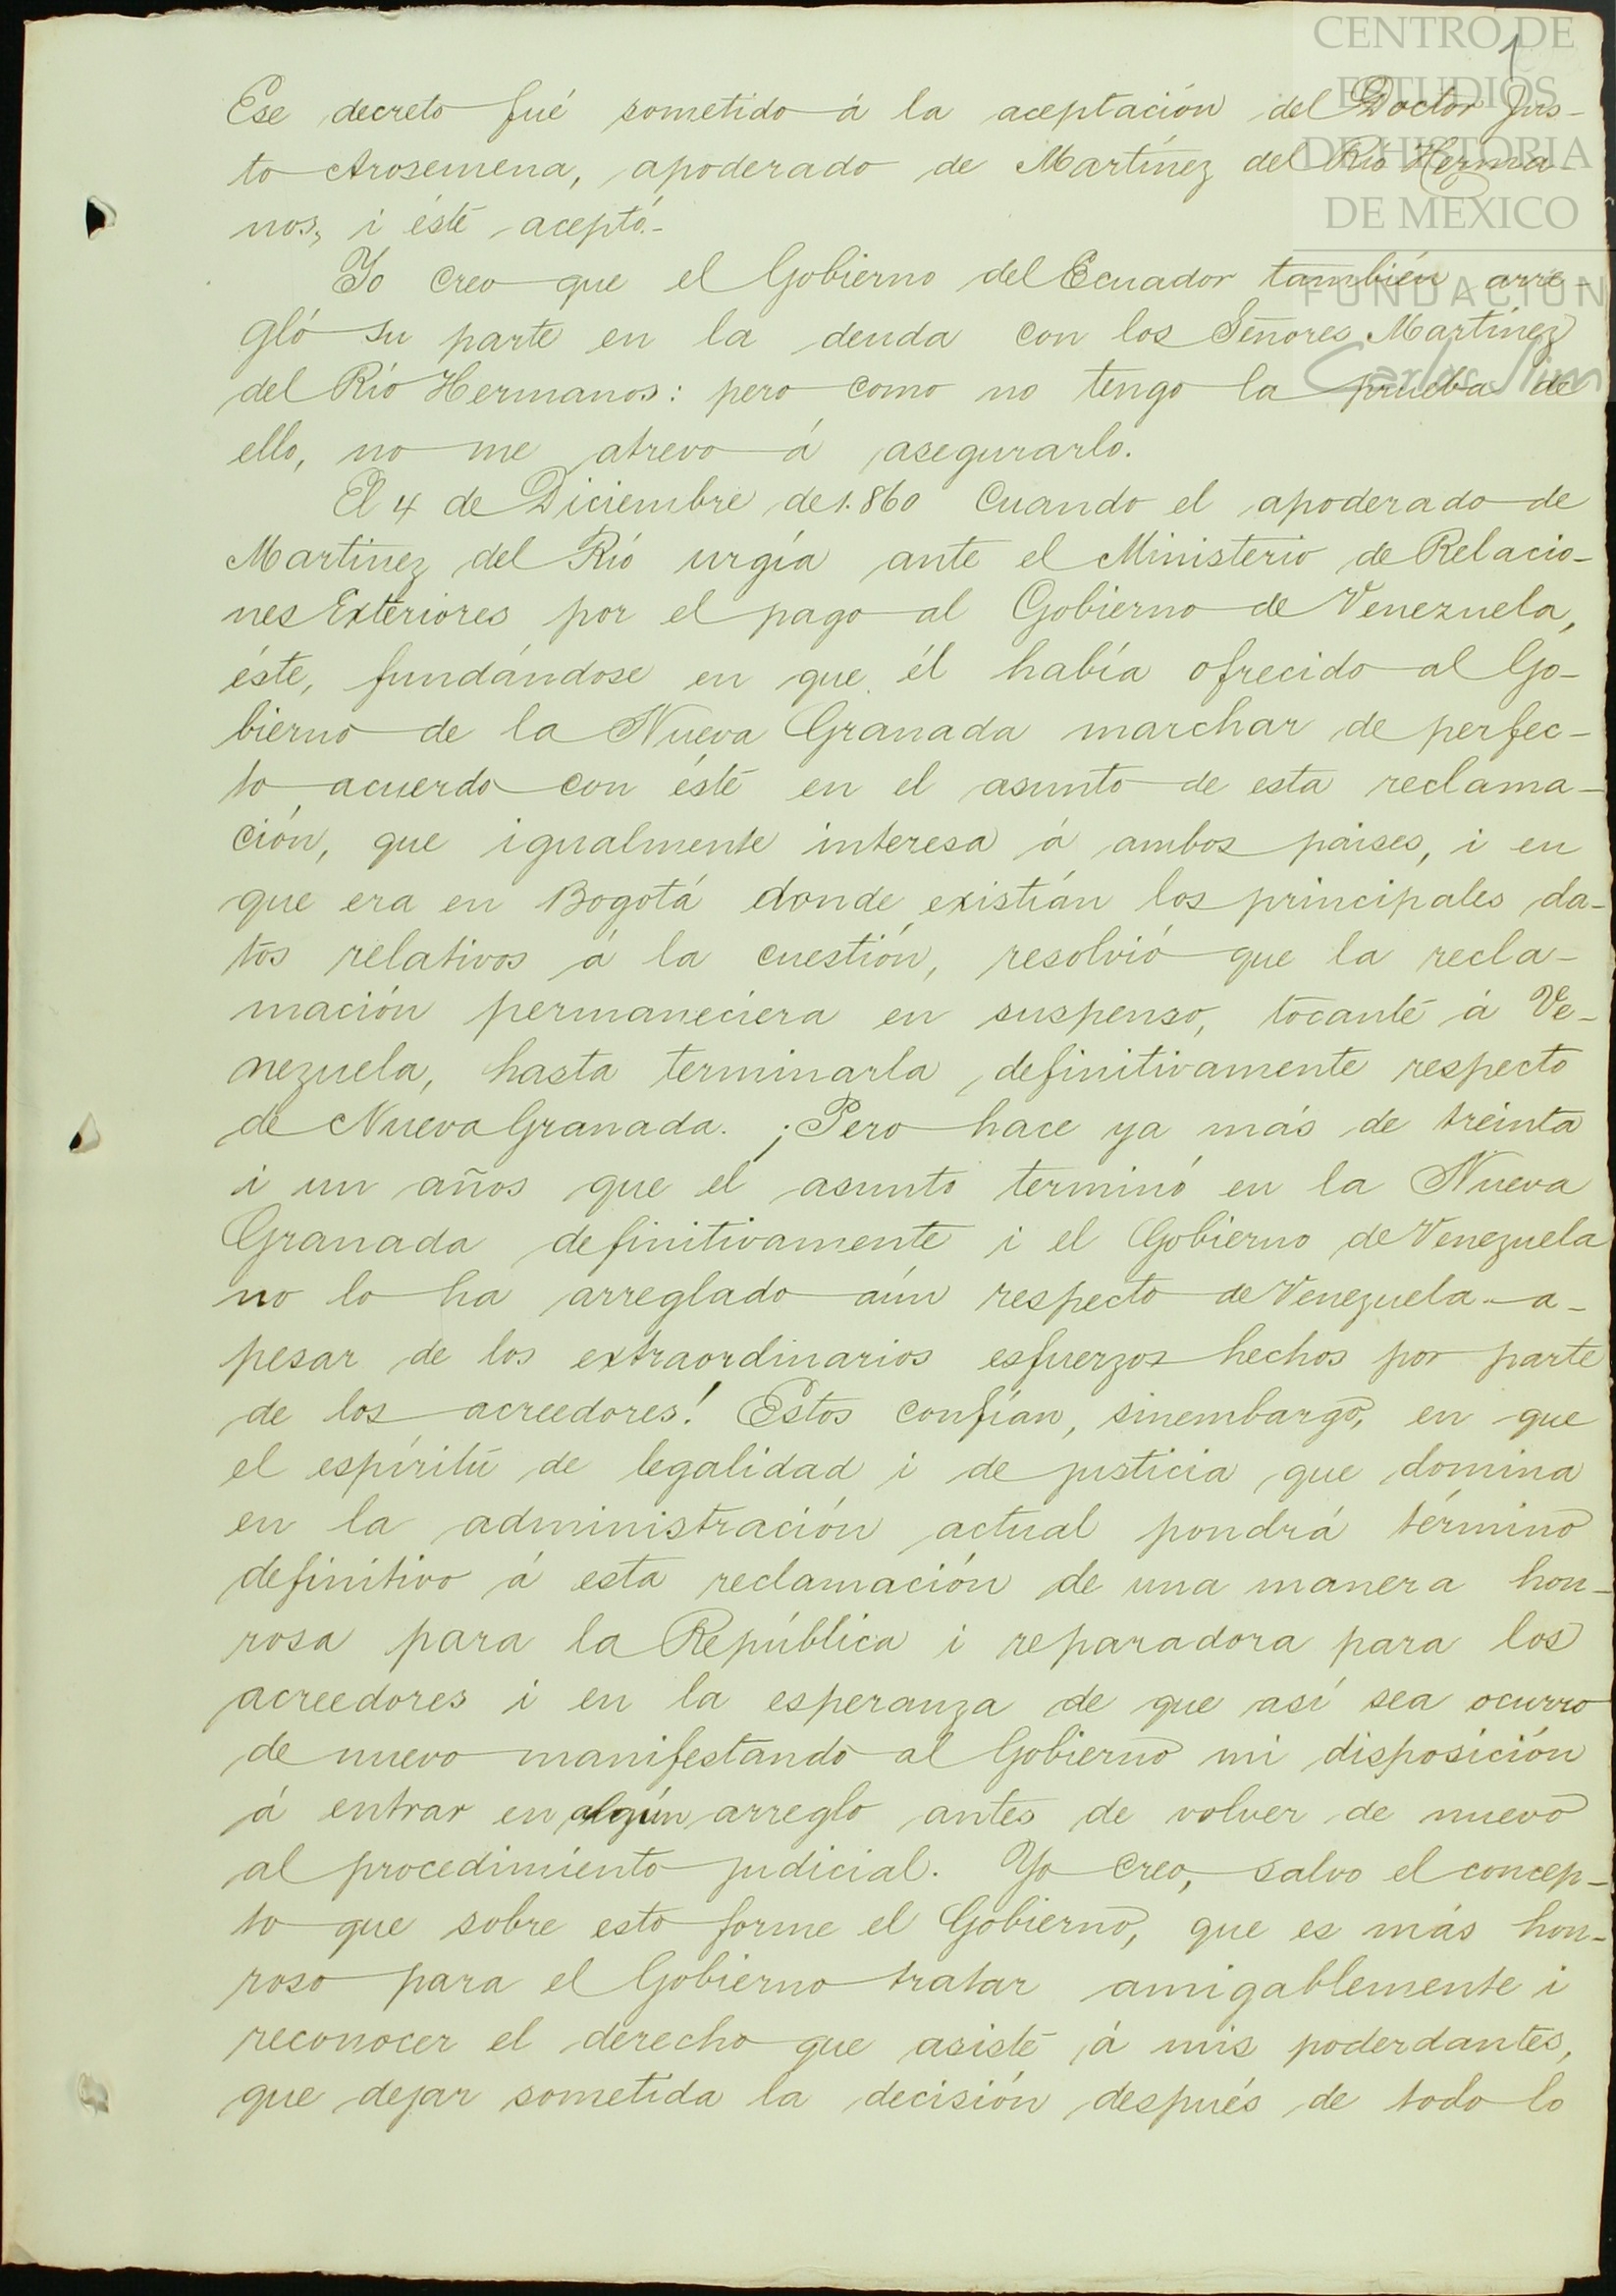 CENTRO DE
ESTUDIOS
DE HISTORIA
DE MEXICO
FUNDACIÓN
Carlos Slim
1
Ese decreto fué sometido á la aceptación del Doctor Jus-
to Arosemena, apoderado de Martínez del Río Herma-
nos, i éste aceptó.-
Yo creo que el Gobierno del Ecuador también arre-
gló su parte en la deuda con los Señores Martínez
del Río Hermanos: pero como no tengo la prueba de
ello, no me atrevo á asegurarlo.
El 4 de Diciembre de 1.860 cuando el apoderado de
Martínez del Río urgía ante el Ministerio de Relacio-
nes Exteriores por el pago al Gobierno de Venezuela,
éste, fundándose en que él había ofrecido al Go-
bierno de la Nueva Granada marchar de perfec-
to acuerdo con éste en el asunto de esta reclama-
ción, que igualmente interesa á ambos países, i en
que era en Bogotá donde existían los principales da-
tos relativos á la cuestión, resolvió que la recla-
mación permaneciera en suspenso, tocante á Ve-
nezuela, hasta terminarla definitivamente respecto
de Nueva Granada. ¡Pero hace ya más de treinta
i un años que el asunto terminó en la Nueva
Granada definitivamente i el Gobierno de Venezuela
no lo ha arreglado aún respecto de Venezuela a-
pesar de los extraordinarios esfuerzos hechos por parte
de los acreedores! Estos confían, sinembargo, en que
el espíritu de legalidad i de justicia que domina
en la administración actual pondrá término
definitivo á esta reclamación de una manera hon-
rosa para la República i reparadora para los
acreedores i en la esperanza de que así sea ocurro
de nuevo manifestando al Gobierno mi disposición
á entrar en algún arreglo antes de volver de nuevo
al procedimiento judicial. Yo creo, salvo el concep-
to que sobre esto forme el Gobierno, que es más hon-
roso para el Gobierno tratar amigablemente i
reconocer el derecho que asiste á mis poderdantes,
que dejar sometida la decisión después de todo lo